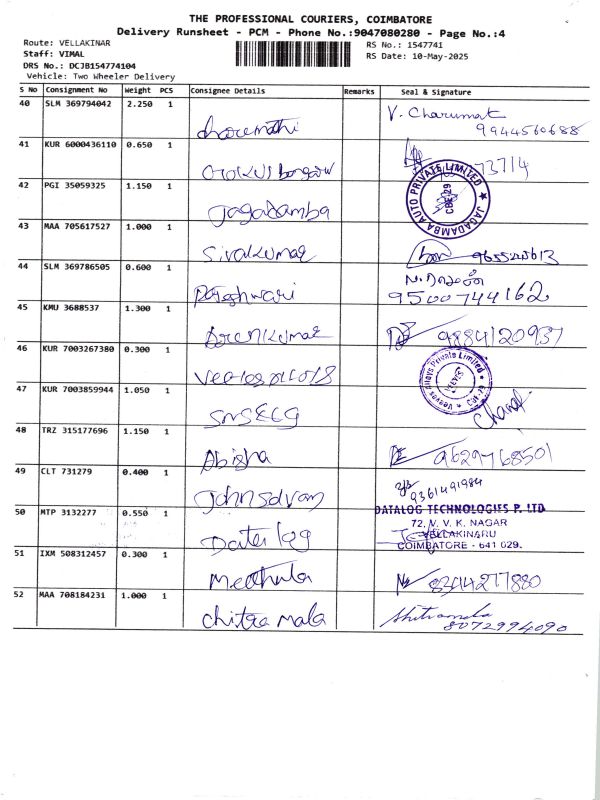 THE PROFESSIONAL COURIERS, COIMBATORE
Delivery Runsheet - PCM - Phone No.:9047080280 - Page No.:4
Route: VELLAKINAR
RS No.: 1547741
Staff: VIMAL
RS Date: 10-May-2025
DRS No.: DCJB154774104
Vehicle: Two Wheeler Delivery
S No Consignment No Weight PCS Consignee Details Remarks Seal & Signature
40 SLM 369794042 2.250 1
V. Charumat
9944560688
41 KUR 6000436110 0.650 1
73714
42 PGI 35059325 1.150 1 Jagadamba
JAGADAMBA AUTO PRIVATE LIMITED ★
CBE 29
43 MAA 705617527 1.000 1 Sivakumar
44 SLM 369786505 0.600 1
9500744162
45 KMU 3688537 1.300 1 Arunkumar
9884120937
46 KUR 7003267380 0.300 1
Veeves Alloys Private Limited
VEEVES
47 KUR 7003859944 1.050 1 SNSECG
48 TRZ 315177696 1.150 1 Abisha
9629768501
49 CLT 731279 0.400 1 Johnselvam
9361491984
50 MTP 3132277 0.550 1 Datalog
DATALOG TECHNOLOGIES P. LTD
72, V. V. K. NAGAR
VELLAKINARU
COIMBATORE - 641 029.
51 IXM 508312457 0.300 1 Methula
8344277880
52 MAA 708184231 1.000 1 Chitra Mala
8072994090